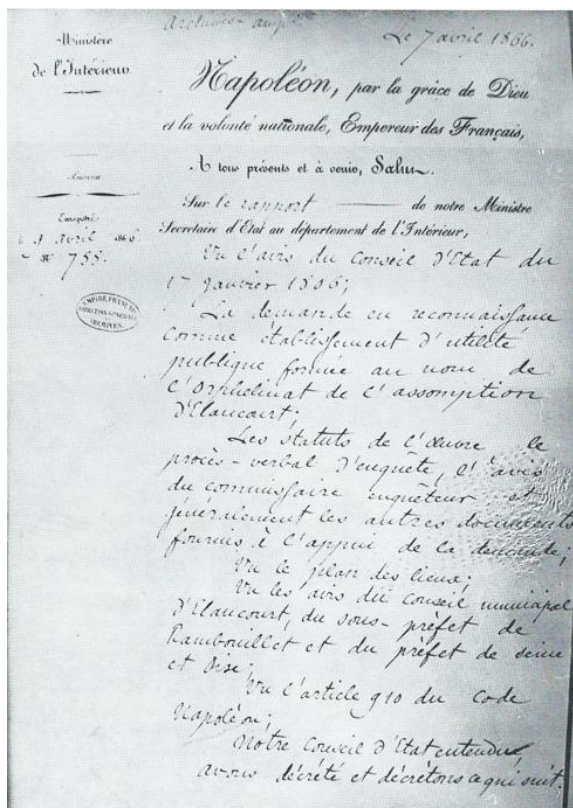 Ministère
de l'Intérieur
Archives
Le 7 avril 1866.
Napoléon, par la grâce de Dieu
et la volonté nationale, Empereur des Français,
A tous présents et à venir, Salut.
Sur le rapport de notre Ministre
Secrétaire d'Etat au département de l'Intérieur,
Enregistré
avril 1866
N° 755.
EMPIRE FRANÇAIS
ARCHIVES
Vu l'avis du Conseil d'Etat du
17 Janvier 1806;
La demande en reconnaissance
comme établissement d'utilité
publique formée au nom de
l'Orphelinat de l'assomption
d'Elancourt;
Les statuts de l'œuvre le
procès-verbal d'enquête, l'avis
du commissaire enquêteur et
généralement les autres documents
fournis à l'appui de la demande;
Vu le plan des lieux;
Vu les avis du Conseil municipal
d'Elancourt, du sous-préfet de
Rambouillet et du préfet de seine
et Oise;
Vu l'article 910 du Code
Napoléon;
Notre Conseil d'Etat entendu,
avons décrété et décrétons ce qui suit.